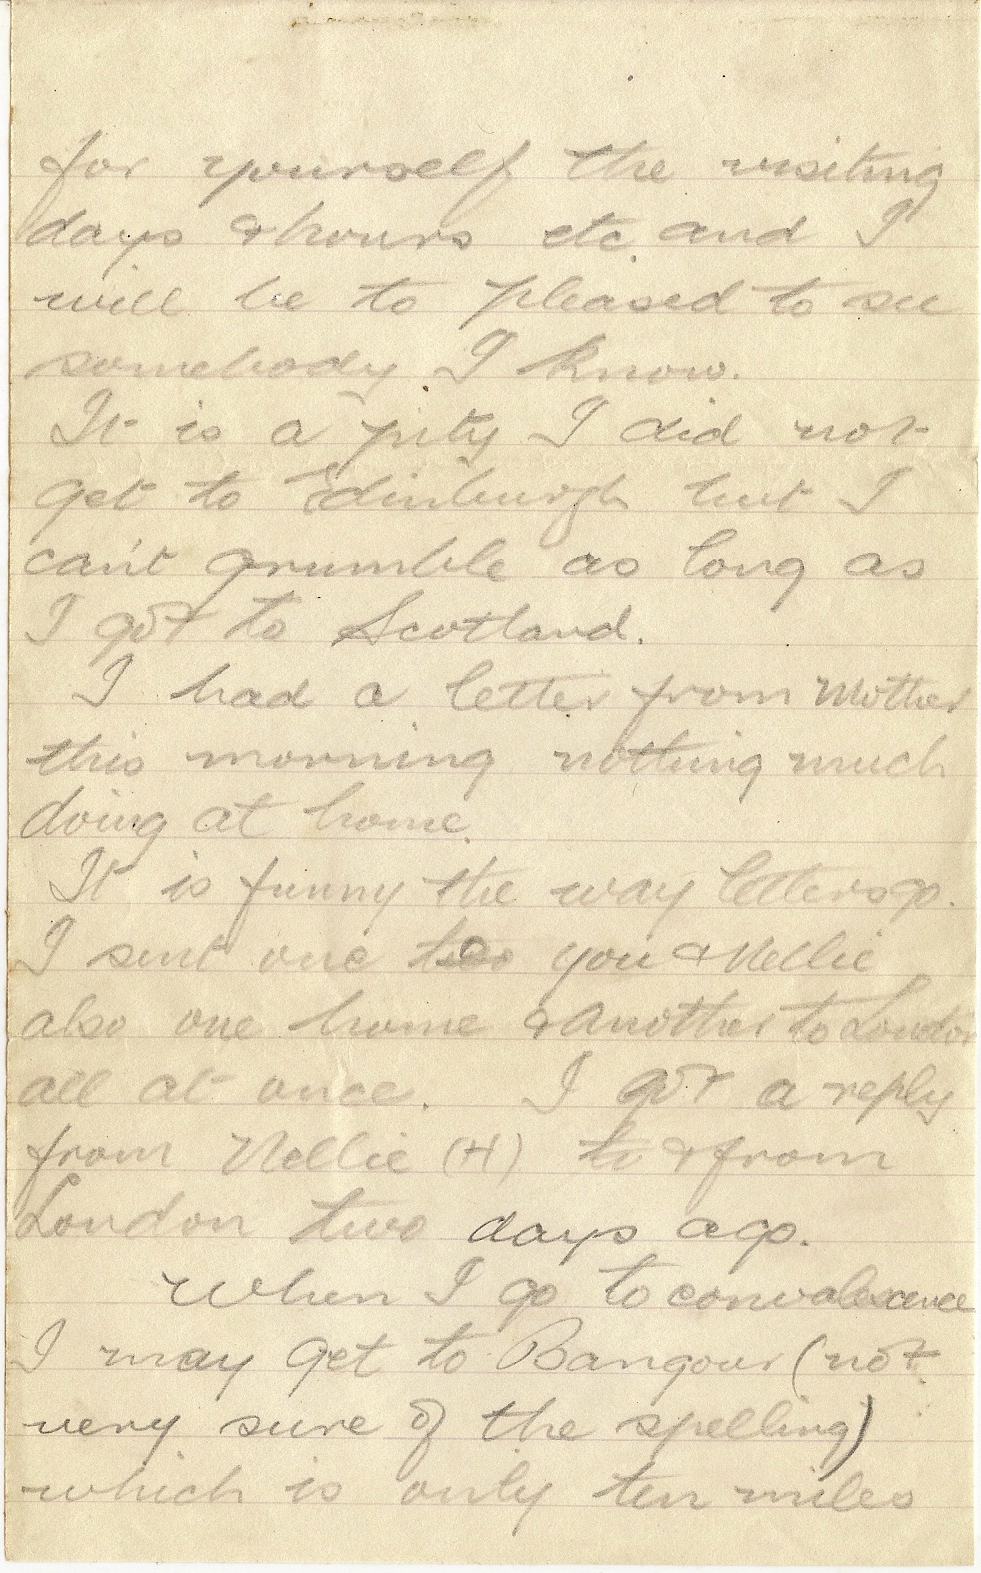 for yourself the visiting
days & hours etc. and I
will be to pleased to see
somebody I know.
It is a pity I did not
get to Edinburgh but I
can't grumble as long as
I got to Scotland.
I had a letter from Mother
this morning nothing much
doing at home.
It is funny the way letters go.
I sent one to you & Nellie
also one home & another to London
all at once. I got a reply
from Nellie (H) & from
London two days ago.
When I go to convalescence
I may get to Bangour (not
very sure of the spelling)
which is only ten miles